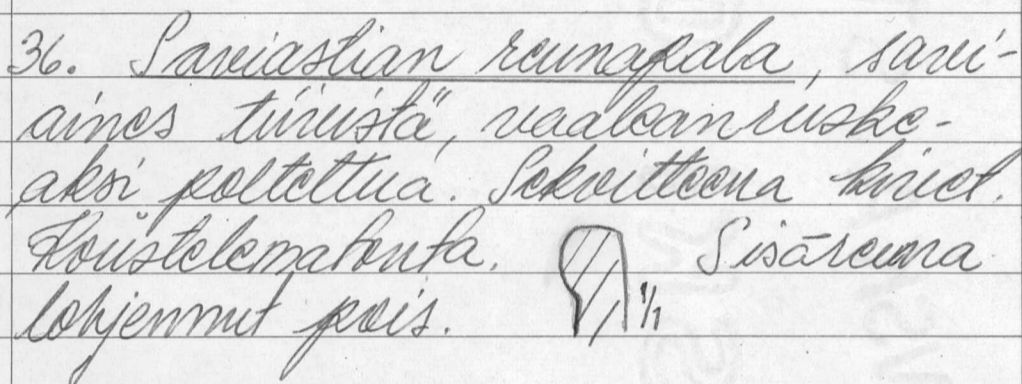 36. Saviastian reunapala, savi-
aines tiivistä, vaaleanruske-
aksi poltettua. Sekoitteena kivet.
Koristelematonta. Sisäreuna
lohjennut pois. 1/1